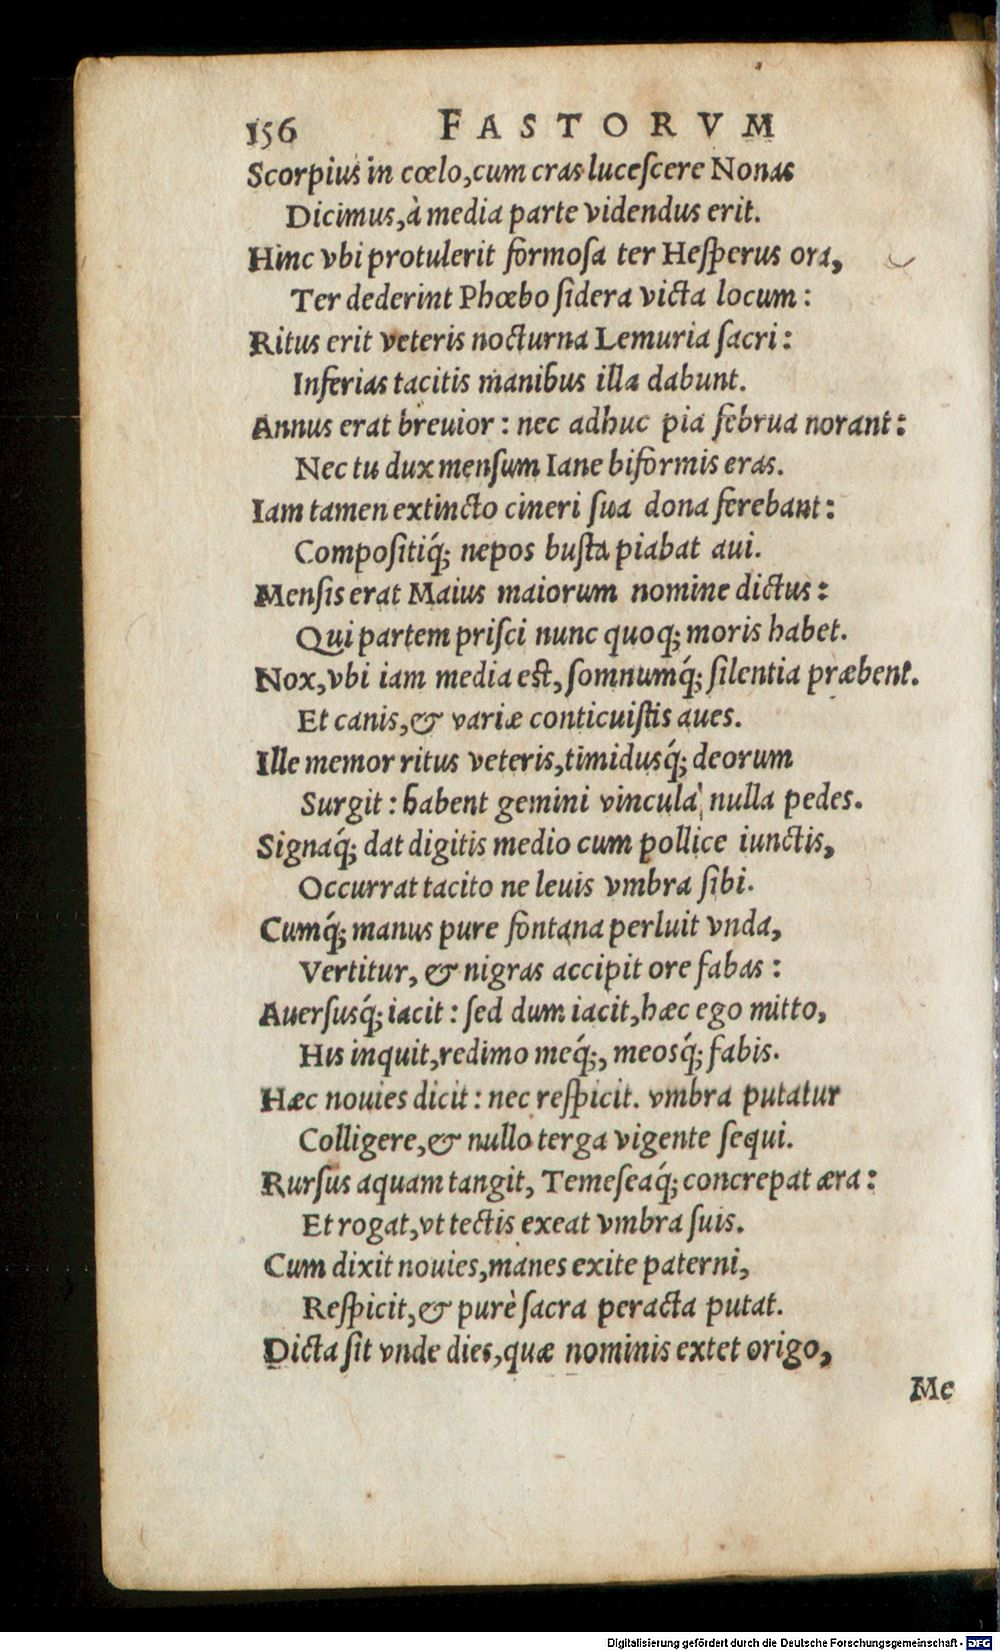 156 FASTORVM
Scorpius in cœlo, cum cras luceſcere Nonas
Dicimus, à media parte videndus erit.
Hinc vbi protulerit formoſa ter Heſperus ora,
Ter dederint Phœbo ſidera victa locum:
Ritus erit veteris nocturna Lemuria ſacri:
Inferias tacitis manibus illa dabunt.
Annus erat breuior: nec adhuc pia februa norant:
Nec tu dux menſum Iane biformis eras.
Iam tamen extincto cineri ſua dona ferebant:
Compoſitiq́; nepos buſta piabat aui.
Menſis erat Maius maiorum nomine dictus:
Qui partem priſci nunc quoq; moris habet.
Nox, vbi iam media est, ſomnumq́; ſilentia præbent.
Et canis, & variæ conticuiſtis aues.
Ille memor ritus veteris, timidusq́; deorum
Surgit: habent gemini vincula nulla pedes.
Signaq́; dat digitis medio cum pollice iunctis,
Occurrat tacito ne leuis vmbra ſibi.
Cumq́; manus pure fontana perluit vnda,
Vertitur, & nigras accipit ore fabas:
Auerſusq́; iacit: ſed dum iacit, hæc ego mitto,
His inquit, redimo meq́;, meosq́; fabis.
Hæc nouies dicit: nec reſpicit. vmbra putatur
Colligere, & nullo terga vigente ſequi.
Rurſus aquam tangit, Temeſeaq́; concrepat æra:
Et rogat, vt tectis exeat vmbra ſuis.
Cum dixit nouies, manes exite paterni,
Reſpicit, & purè ſacra peracta putat.
Dicta ſit vnde dies, quæ nominis extet origo,
Me
Digitalisierung gefördert durch die Deutsche Forschungsgemeinschaft - DFG